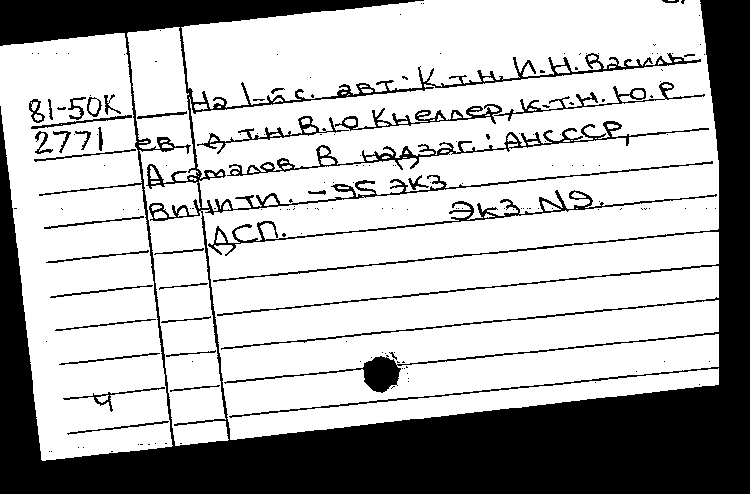 81-50К
2771
На 1-й с. авт.: К.т.н. И.Н. Василь=
ев, д.т.н. В.Ю. Кнеллер, к.т.н. Ю.Р
Агамалов В надзаг.: АНСССР,
ВИНИТИ. - 95 экз.
ДСП. Экз. №.
4